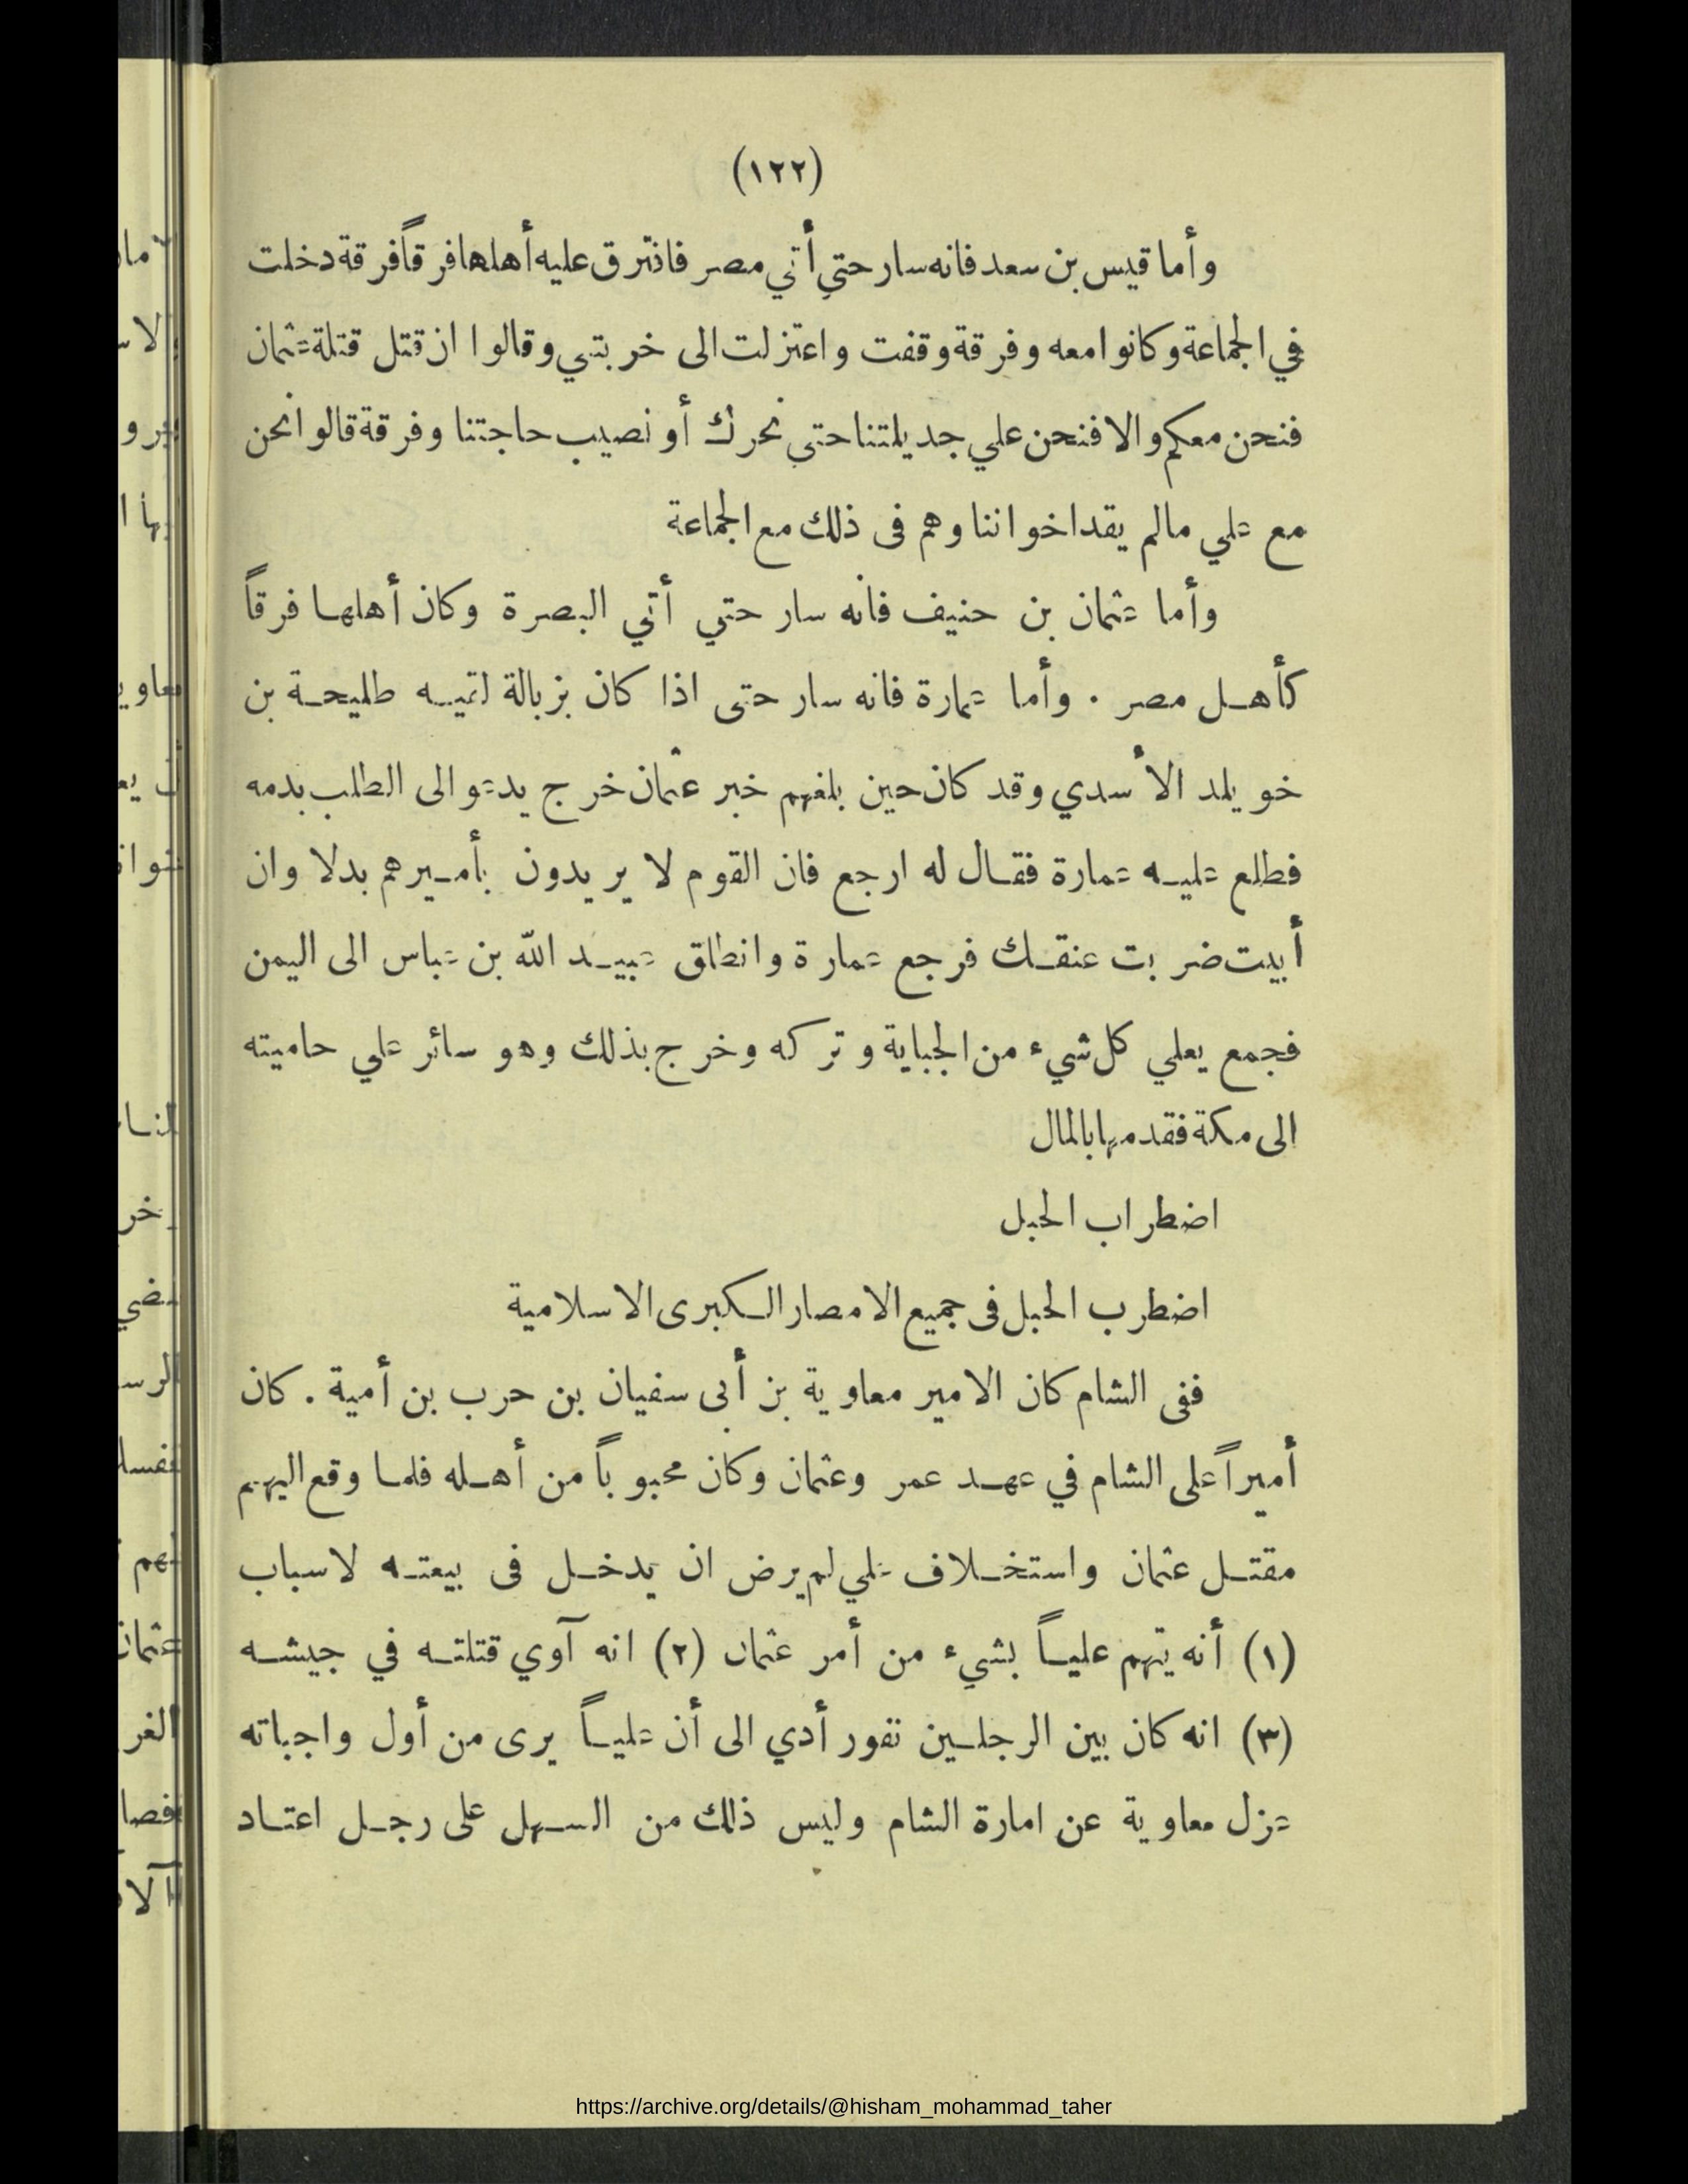 (١٢٢)
وأما قيس بن سعد فانه سار حتي أتي مصر فافترق عليه أهلها فرقاً فرقة دخلت
في الجماعة وكانوا معه وفرقة وقفت واعتزلت الى خربتي وقالوا ان قتل قتلة عثمان
فنحن معكم والا فنحن علي جديلتنا حتي نحرك أو نصيب حاجتنا وفرقة قالوا نحن
مع علي مالم يقد اخواننا وهم فى ذلك مع الجماعة
وأما عثمان بن حنيف فانه سار حتي أتي البصرة وكان أهلها فرقاً
كأهل مصر . وأما عمارة فانه سار حتى اذا كان بزبالة لقيه طليحة بن
خويلد الأسدي وقد كان حين بلغهم خبر عثمان خرج يدعو الى الطلب بدمه
فطلع عليه عمارة فقال له ارجع فان القوم لا يريدون بأميرهم بدلا وان
أبيت ضربت عنقك فرجع عمارة وانطلق عبيد الله بن عباس الى اليمن
فجمع يعلي كل شيء من الجباية وتركه وخرج بذلك وهو سائر علي حاميته
الى مكة فقدمها بالمال
اضطراب الحبل
اضطرب الحبل فى جميع الامصار الكبرى الاسلامية
ففى الشام كان الامير معاوية بن أبى سفيان بن حرب بن أمية . كان
أميراً على الشام في عهد عمر وعثمان وكان محبوباً من أهله فلما وقع اليهم
مقتل عثمان واستخلاف علي لم يرض ان يدخل فى بيعته لاسباب
(١) أنه يتهم علياً بشيء من أمر عثمان (٢) انه آوي قتلته في جيشه
(٣) انه كان بين الرجلين نفور أدي الى أن علياً يرى من أول واجباته
عزل معاوية عن امارة الشام وليس ذلك من السهل على رجل اعتاد
https://archive.org/details/@hisham_mohammad_taher